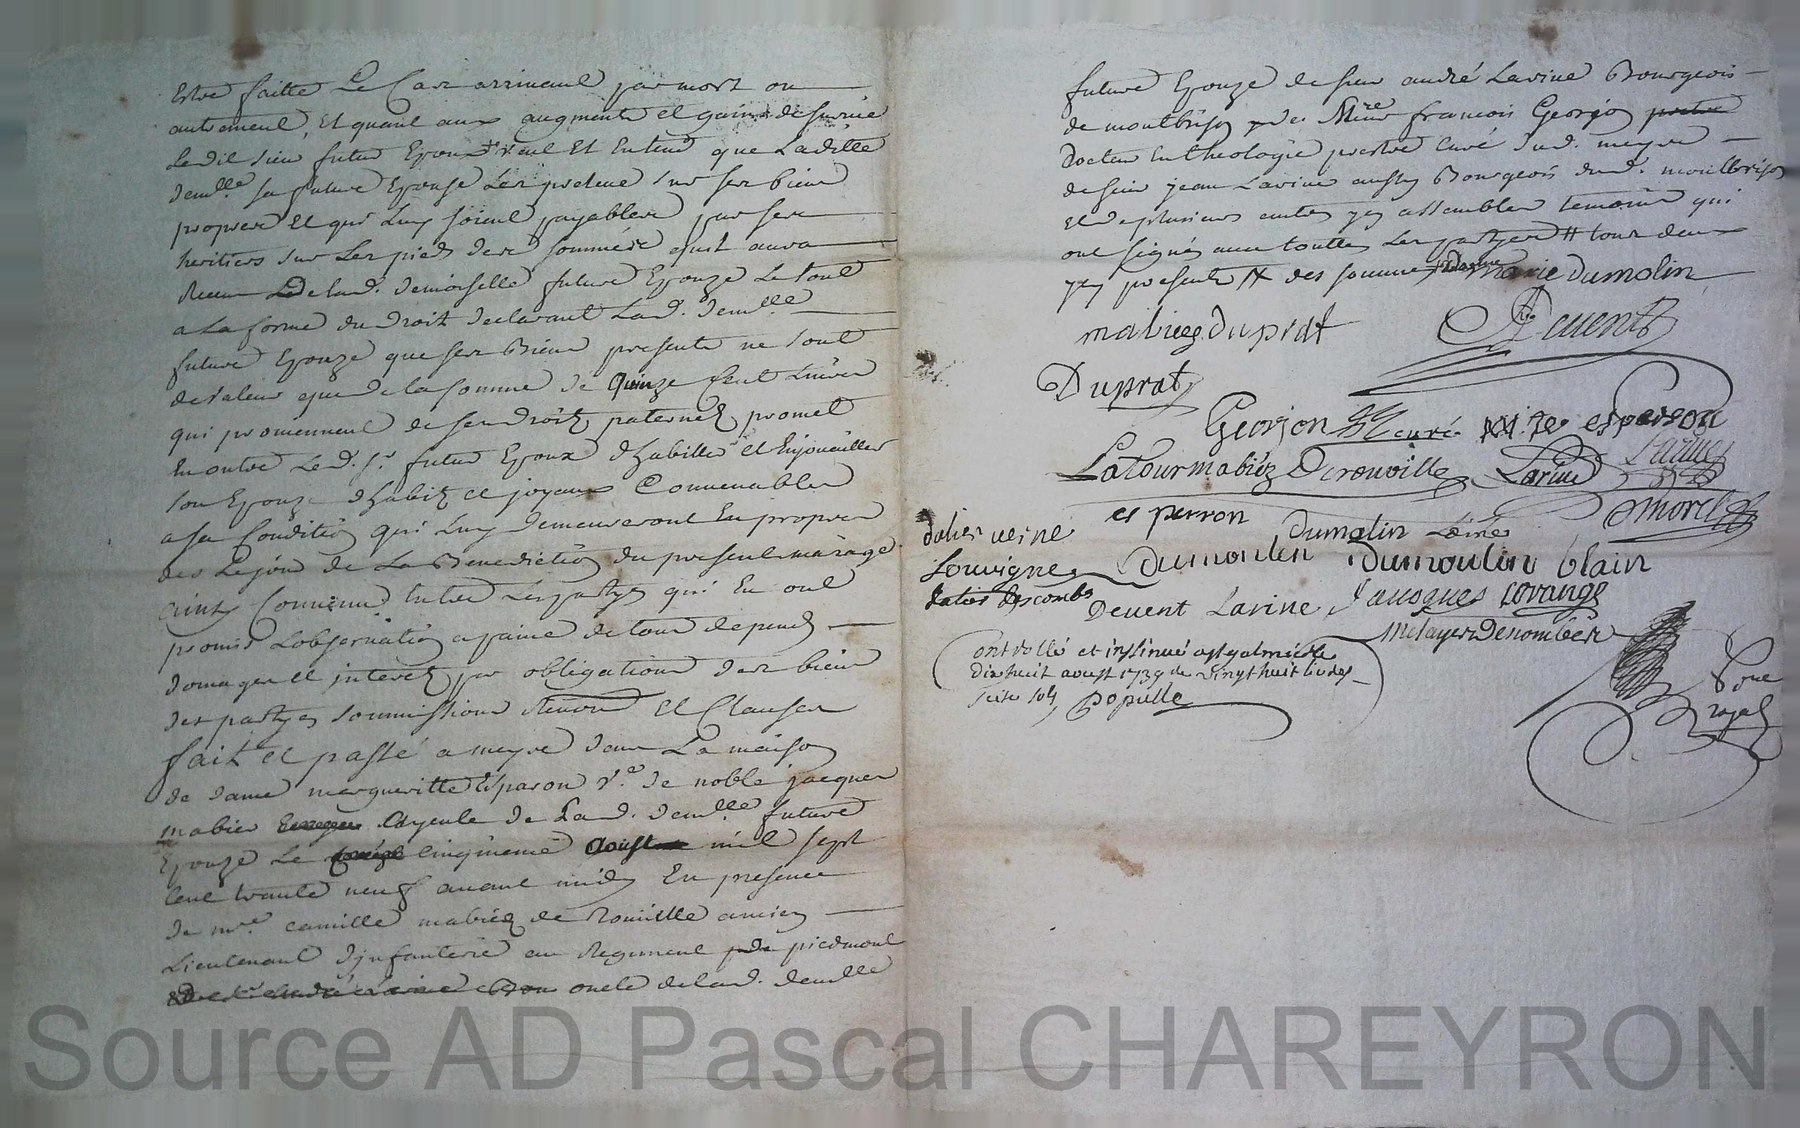 Estre faitte Le Cas arriveant par mort ou
autrement, Et quant aux augment et gains de survie
Ledit sieur futur Epoux veut Et Entend que Laditte
demlle sa future Epouse Les prelene sur ses biens
propres et qui Luy soient payables par ses
heritiers sur Les pieds des sommes quil aura
Receu de lad. demoiselle future Epouze Le tout
a La forme du droit declarant Lad. demlle
future Epouze que ses Biens presents ne sont
de valeur que de la somme de quinze cent Livres
qui proviennent de ses droits paternels promet
En outre Led. sr. futur Epoux d'habiller et Enjouailler
son Epouze d'habits et joyaux Convenables
a sa Condition qui Luy demeureront En propres
des Le jour de La Benediction du present mariage
ainsy Convenu Entre Les partyes qui En ont
promis L'observation a paine de tous depends
domages et interets par obligations des biens
des partyes soummissions Renon et Clauses
fait et passé a meyre dans La maison
de dame margueritte Esparon ve. de noble jacques
mabiez ayeule de Lad. demlle. future
Epouze Le cinquieme Aoust mil sept
cent trante neuf avant midy En presence
de mre. camille mabiez de Rouville ancien
Lieutenant d'infanterie au Regiment piedmont
oncle de lad. demlle
future Epouze de sieur andré Lavine Bourgeois
de montbrison de Mre francois Georjon prètre
docteur En theologie prestre curé dud. meyre
de sieur jean Lavine aussy Bourgeois dud. montbrison
et de plusieurs autres y assemblés temoins qui
ont signés avec touttes Les partyes # tous deux
y presents # des sommes
marie dumolin
mabiez duprat
Devent
Duprat
Georjon curé
esperson
Latourmabiéz Derouville Lavine
Lavine
esperron
Morel
dalier veine
dumolin L'éiné
Souvigne
dumoulin
dumoulin blain
dalier descombs
Devent Lavine
Jausques Lorange
Metayer Denombér
Controllé et insinué a st galmier le
dix huit aoust 1739 vingt huit livres
seize sols
Populle
Noe
royal
Source AD Pascal CHAREYRON